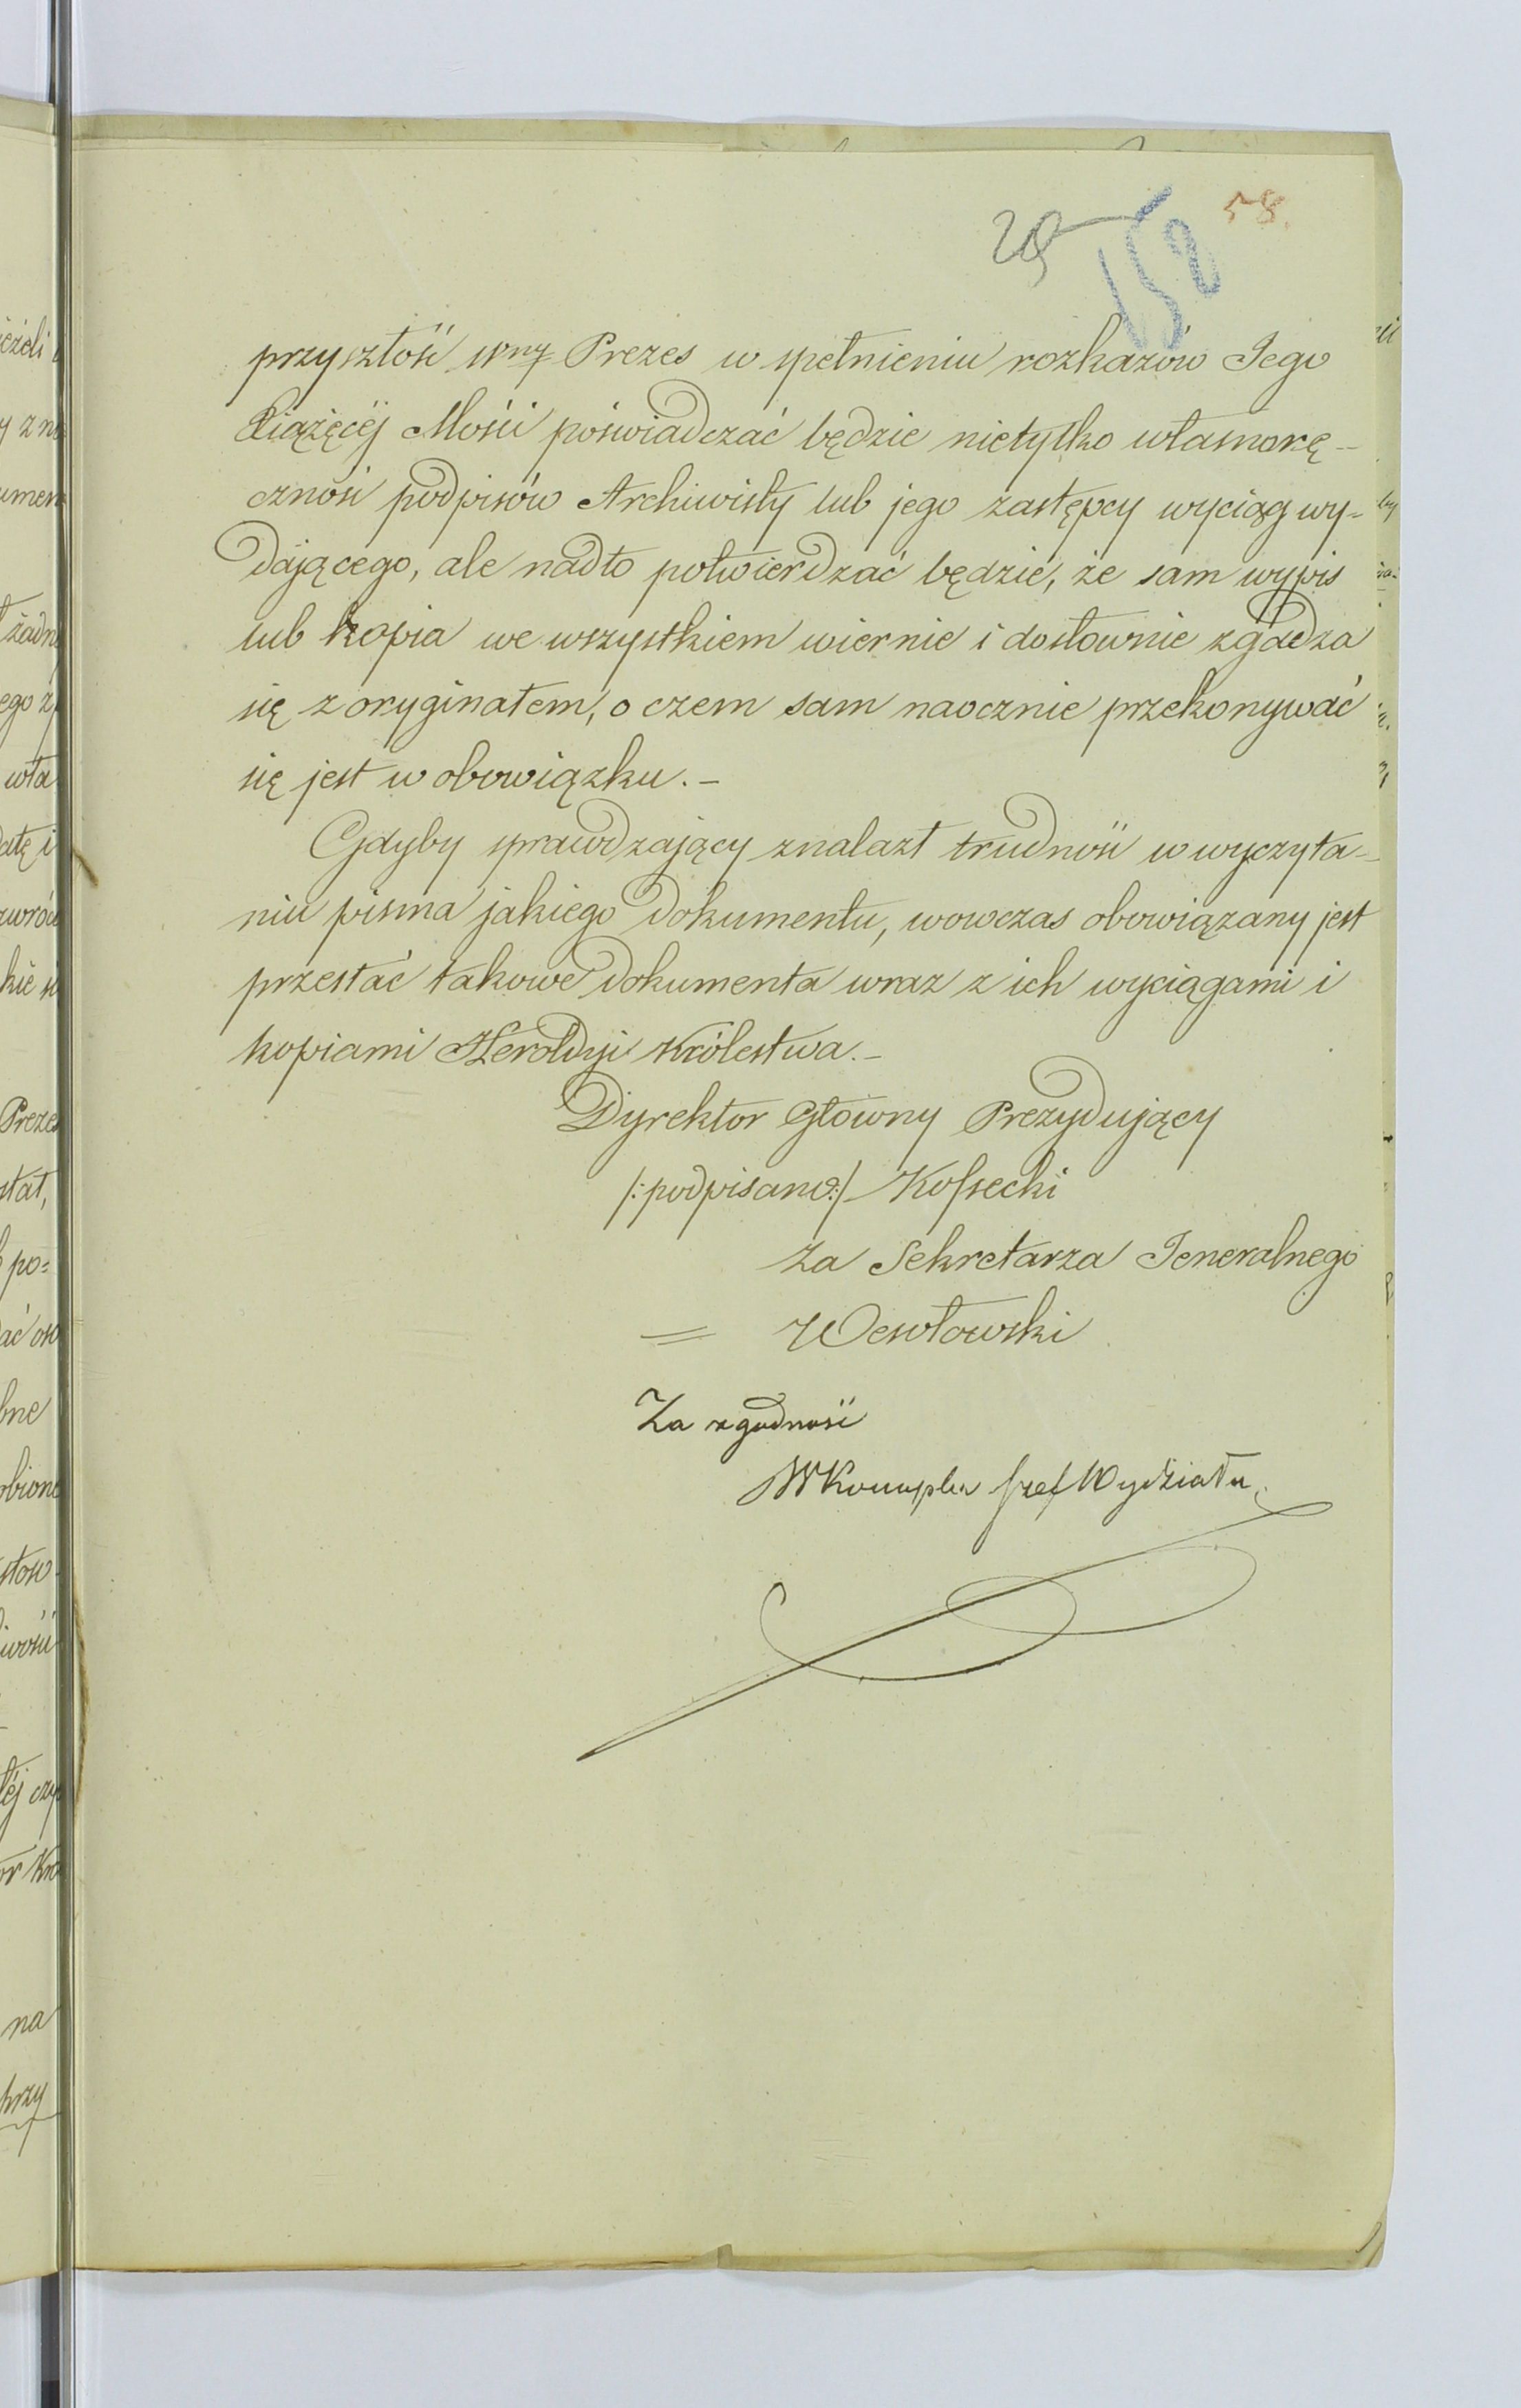 58.
152
przyszłość Wny Prezes w spełnieniu rozkazów Jego
Xiążęcéj Mości poświadczać będzie nietylko własnorę-
czność podpisów Archiwisty lub jego zastępcy wyciąg wy-
dającego, ale nadto potwierdzać będzie, że sam wypis
lub kopia we wszystkiem wiernie i dosłownie zgadza
się z oryginałem, o czem sam naocznie przekonywać
się jest w obowiązku.-
Gdyby sprawdzający znalazł trudność w wyczyta-
niu pisma jakiego dokumentu, wowczas obowiązany jest
przesłać takowe dokumenta wraz z ich wyciągami i
kopiami Heroldyi Królestwa.-
Dyrektor Główny Prezydujący
/:podpisano:/ Kossecki
Za Sekretarza Jeneralnego
= Wesołowski
Za zgodność
Szef Wydziału